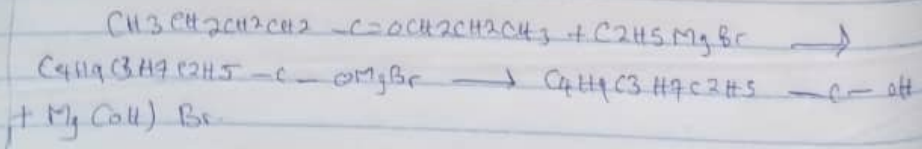 CH3 CH2CH2CH2 -C=OCH2CH2CH3 + C2H5MgBr →
C4H9C3H7C2H5 -C- OMgBr → C4H9C3H7C2H5 -C- OH
+ Mg(OH) Br